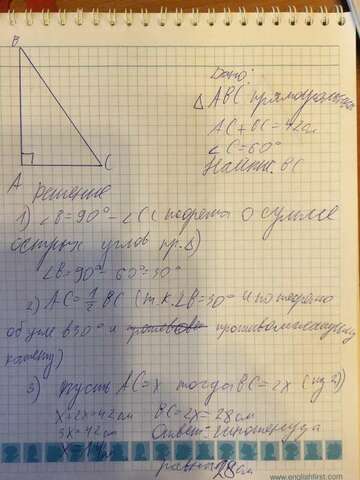 B
Дано:
△ ABC прямоугольный
AC + BC = 42см
∠C = 60°
Найти: BC
A
C
Решение
1) ∠B = 90° - ∠C (теорема о сумме
острых углов пр.△)
∠B = 90° - 60° = 30°
2) AC = 1/2 BC (т.к. ∠B = 30° и по теореме
об угле в 30° и противолежащему
катету)
3) Пусть AC = x тогда BC = 2x (из 2)
x + 2x = 42 см BC = 2x = 28 см
3x = 42 см Ответ: гипотенуза
x = 14 см
равна 28 см
www.englishfirst.com